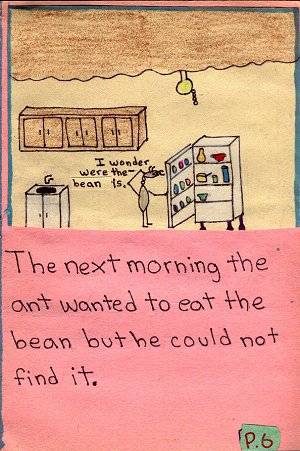 I wonder
were the
bean is.
The next morning the
ant wanted to eat the
bean but he could not
find it.
P.6